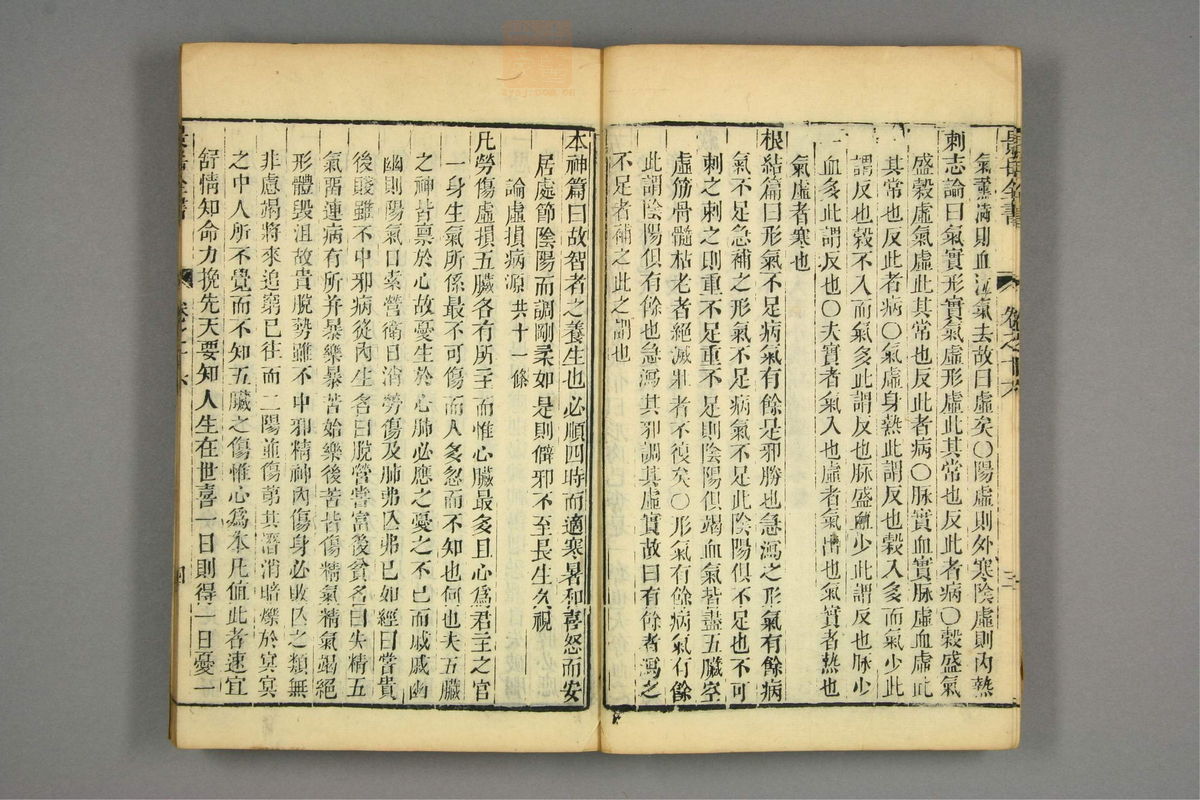 景岳全書
氣薰滿則血泣氣去故曰虛矣○陽虛則外寒陰虛則內熱
刺志論曰氣實形實氣虛形虛此其常也反此者病○穀盛氣
盛穀虛氣虛此其常也反此者病○脉實血實脉虛血虛此
其常也反此者病○氣虛身熱此謂反也穀入多而氣少此
謂反也穀不入而氣多此謂反也脉盛血少此謂反也脉少
血多此謂反也○夫實者氣入也虛者氣出也氣實者熱也
氣虛者寒也
根結篇曰形氣不足病氣有餘是邪勝也急瀉之形氣有餘病
氣不足急補之形氣不足病氣不足此陰陽俱不足也不可
刺之刺之則重不足重不足則陰陽俱竭血氣皆盡五臟空
虛筋骨髓枯老者絕滅壯者不復矣○形氣有餘病氣有餘
此謂陰陽俱有餘也急瀉其邪調其虛實故曰有餘者瀉之
不足者補之此之謂也
本神篇曰故智者之養生也必順四時而適寒暑和喜怒而安
居處節陰陽而調剛柔如是則僻邪不至長生久視
論虛損病源 共十一條
凡勞傷虛損五臟各有所主而惟心臟最多且心為君主之官
一身生氣所係最不可傷而人多忽而不知也何也夫五臟
之神皆禀於心故憂生於心肺必應之憂之不已而戚戚幽
幽則陽氣日索營衛日消勞傷及肺弗亾弗已如經曰嘗貴
後賤雖不中邪病從內生名曰脫營嘗富後貧名曰失精五
氣留連病有所并暴樂暴苦始樂後苦皆傷精氣精氣竭絕
形體毀沮故貴脫勢雖不中邪精神內傷身必敗亾之類無
非慮竭將來追窮已往而二陽並傷第其潛消暗爍於冥冥
之中人所不覺而不知五臟之傷惟心為本凡值此者速宜
舒情知命力挽先天要知人生在世喜一日則得一日憂一
景岳全書
四